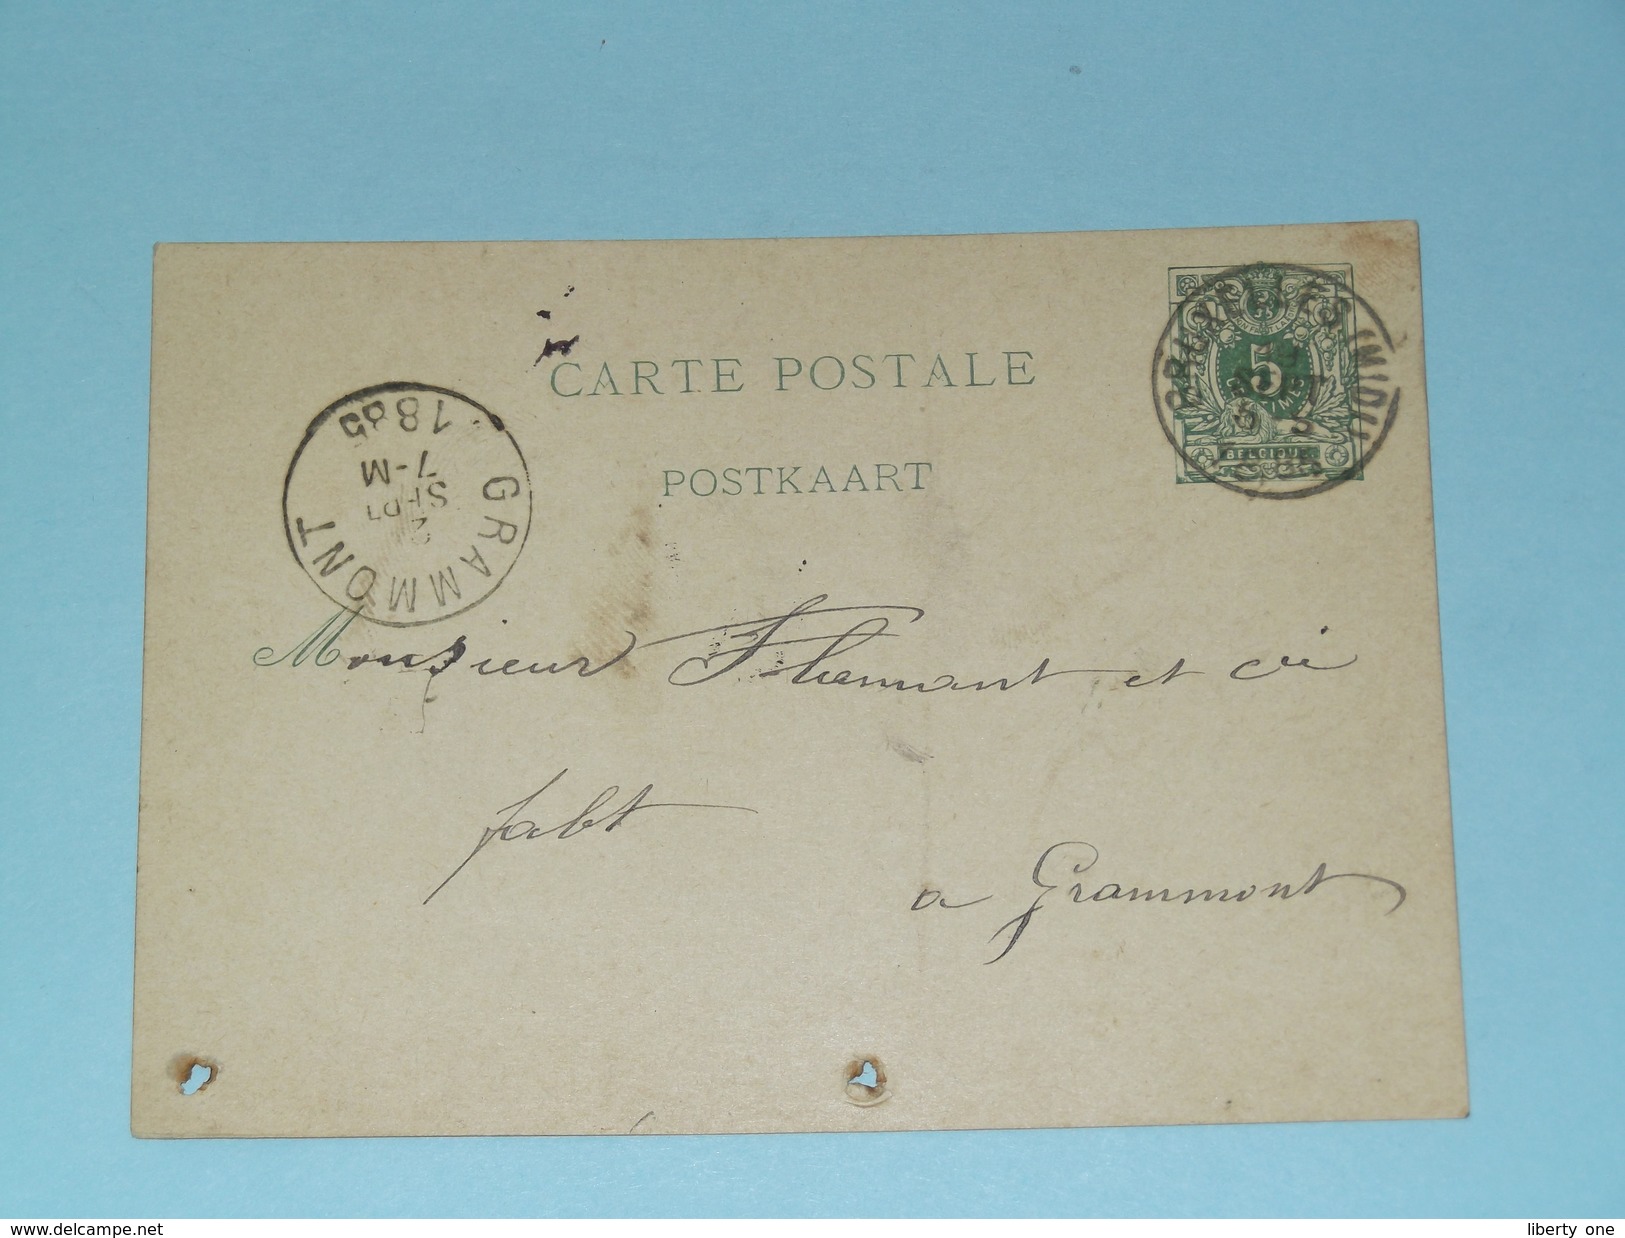 CARTE POSTALE
POSTKAART
BRUXELLES (MIDI)
5
BELGIQUE
GRAMMONT
2
SEPT
7-M
1885
Monsieur Flamant et Cie
fabt
a Grammont
www.delcampe.net
liberty_one